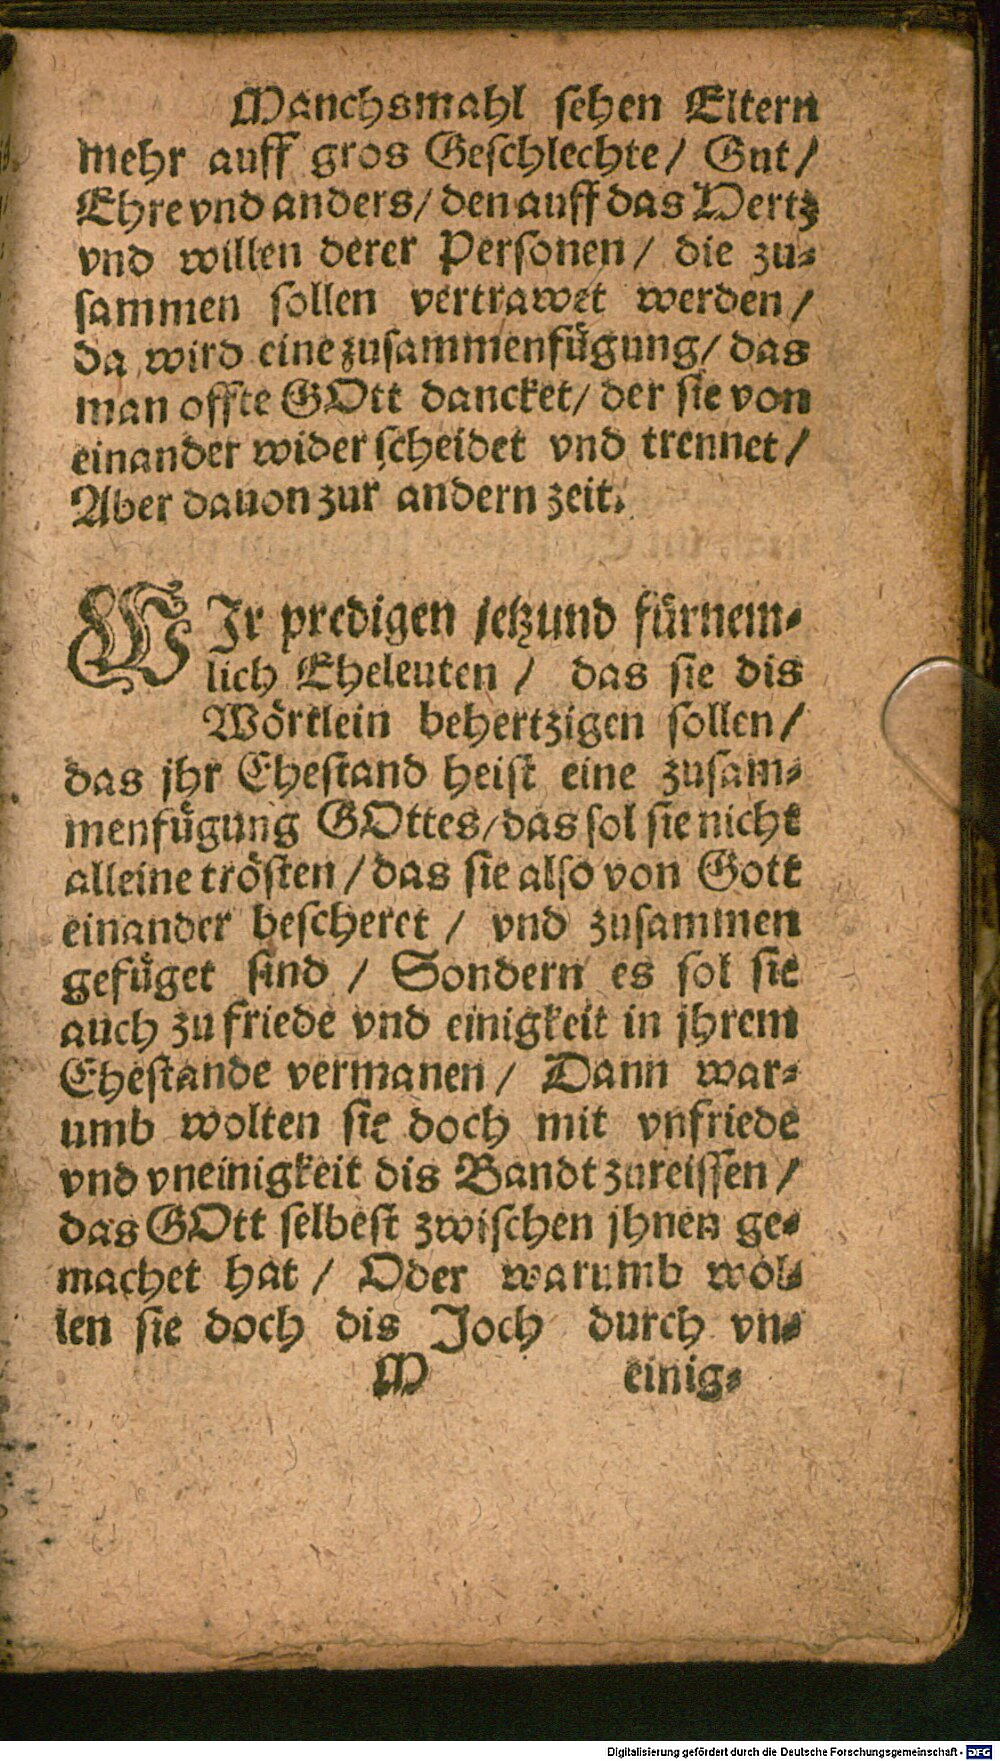 Manchsmahl sehen Eltern
mehr auff gros Geschlechte / Gut /
Ehre vnd anders / den auff das Hertz
vnd willen derer Personen / die zu-
sammen sollen vertrawet werden /
da wird eine zusammenfügung / das
man offte GOtt dancket / der sie von
einander wider scheidet vnd trennet /
Aber dauon zur andern zeit.
WIr predigen jetzund fürnem-
lich Eheleuten / das sie dis
Wörtlein behertzigen sollen /
das jhr Ehestand heist eine zusam-
menfügung GOttes / das sol sie nicht
alleine trösten / das sie also von Gott
einander bescheret / vnd zusammen
gefüget sind / Sondern es sol sie
auch zu friede vnd einigkeit in jhrem
Ehestande vermanen / Dann war-
umb wolten sie doch mit vnfriede
vnd vneinigkeit dis Bandt zureissen /
das GOtt selbest zwischen jhnen ge-
machet hat / Oder warumb wol-
len sie doch dis Joch durch vn-
M einig-
Digitalisierung gefördert durch die Deutsche Forschungsgemeinschaft - DFG